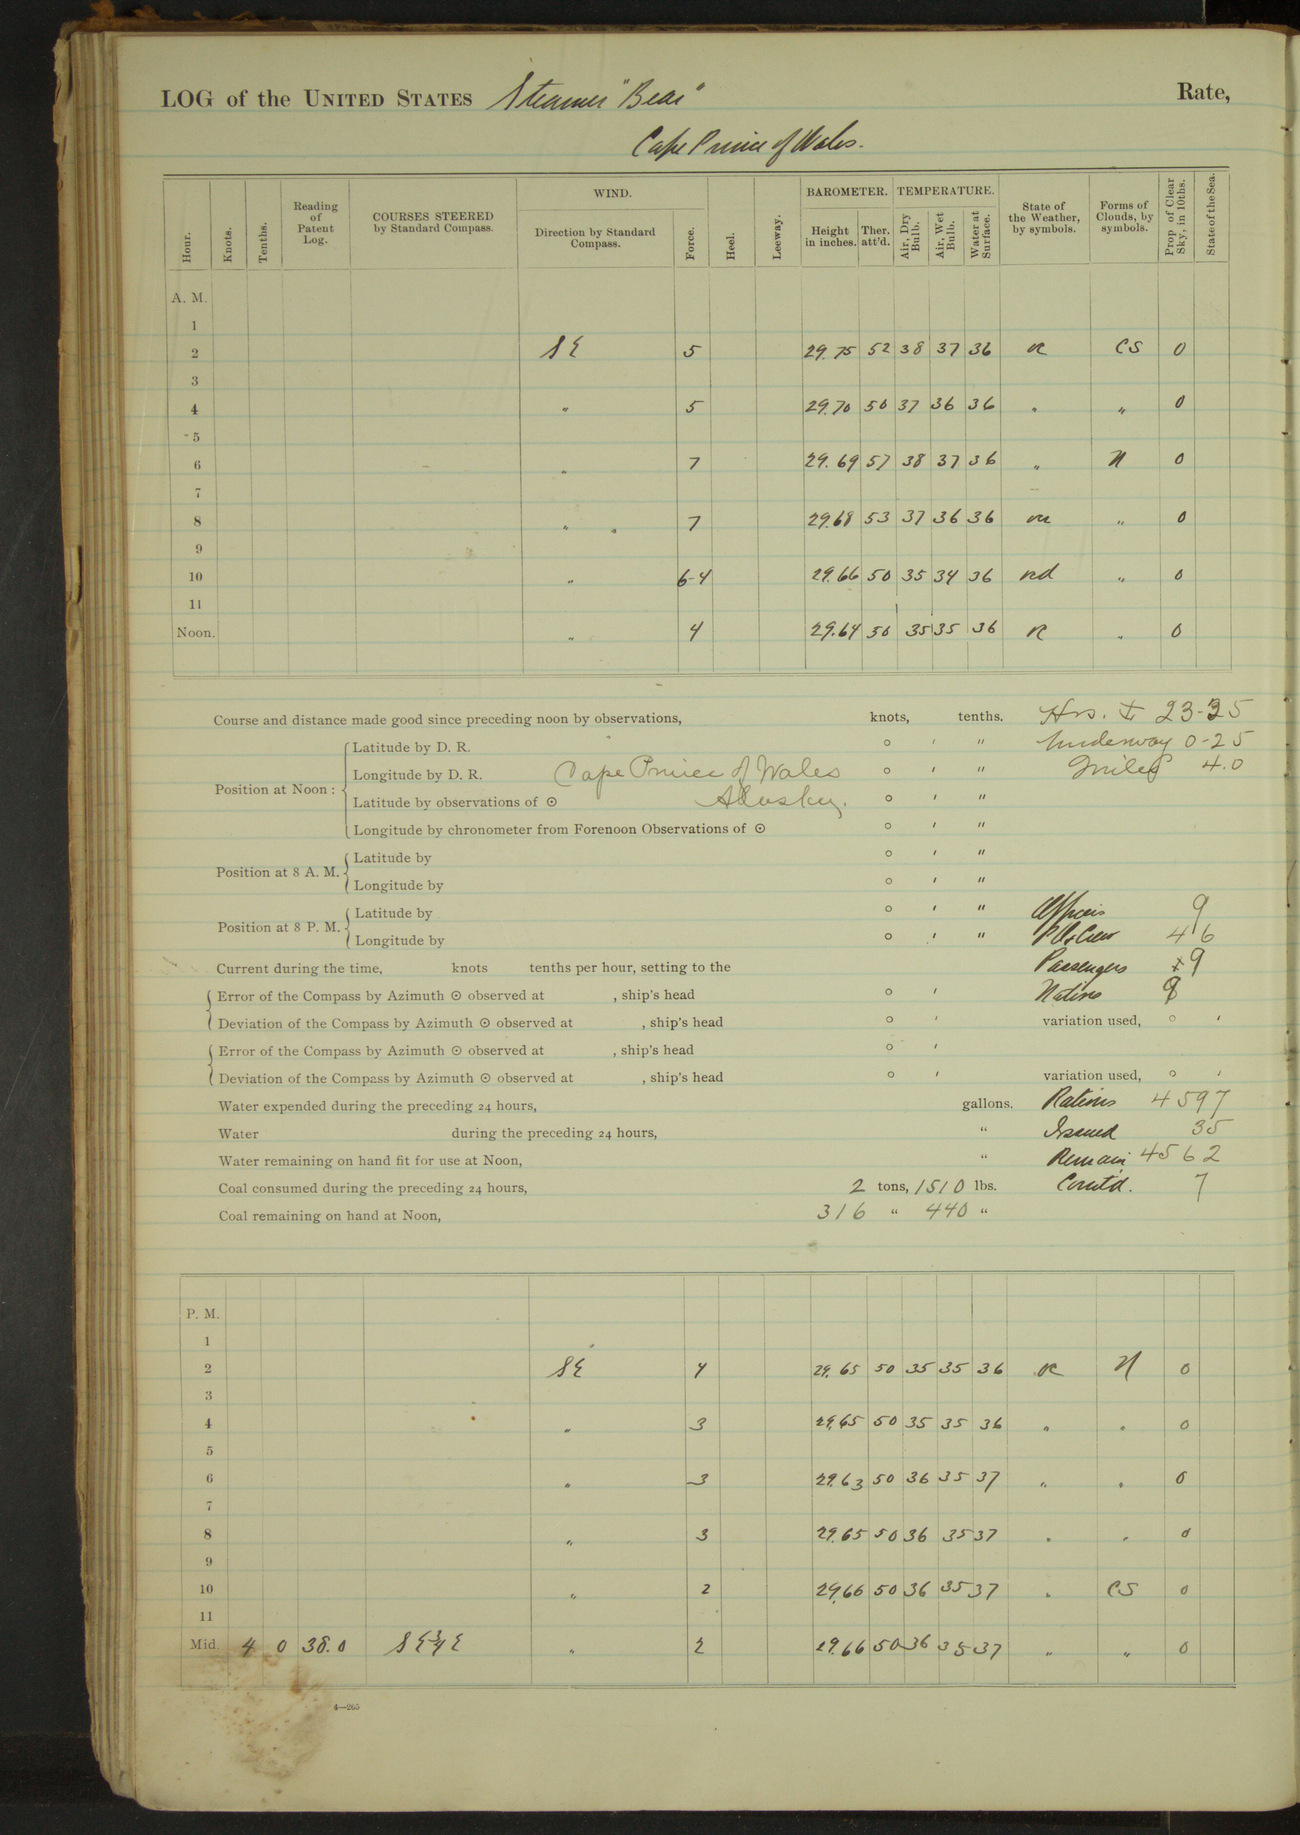 LOG of the UNITED STATES Steamer "Bear" Rate,
Cape Prince of Wales.
Hour. Knots. Tenths. Reading of Patent Log. COURSES STEERED by Standard Compass. WIND. Direction by Standard Compass. Force. Heel. Leeway. BAROMETER. Height in inches. Ther. att'd. TEMPERATURE. Air, Dry Bulb. Air, Wet Bulb. Water at Surface. State of the Weather, by symbols. Forms of Clouds, by symbols. Prop of Clear Sky, in 10ths. State of the Sea.
A. M.
1
2 SE 5 29.75 52 38 37 36 CS 0
3
4 " 5 29.70 50 37 36 36 " " 0
5
6 " 7 29.69 57 38 37 36 " N 0
7
8 " " 7 29.68 53 37 36 36 " 0
9
10 " 6-4 29.66 50 35 34 36 " 0
11
Noon. " 4 29.64 50 35 35 36 " 0
Course and distance made good since preceding noon by observations, knots, tenths. Hrs. 23-35
Position at Noon: Latitude by D. R. ° ' " Underway 0-25
Longitude by D. R. Cape Prince of Wales ° ' " Miles 4.0
Latitude by observations of ☉ Alaska. ° ' "
Longitude by chronometer from Forenoon Observations of ☉ ° ' "
Position at 8 A. M. Latitude by ° ' "
Longitude by ° ' "
Position at 8 P. M. Latitude by ° ' " Officers 9
Longitude by ° ' " Crew 46
Current during the time, knots tenths per hour, setting to the Passengers 9
Error of the Compass by Azimuth ☉ observed at , ship's head ° ' Natives
Deviation of the Compass by Azimuth ☉ observed at , ship's head ° ' variation used, ° '
Error of the Compass by Azimuth ☉ observed at , ship's head ° '
Deviation of the Compass by Azimuth ☉ observed at , ship's head ° ' variation used, ° '
Water expended during the preceding 24 hours, gallons. Rations 4597
Water during the preceding 24 hours, " Issued 35
Water remaining on hand fit for use at Noon, " Remain 4562
Coal consumed during the preceding 24 hours, 2 tons, 1510 lbs. Comtd. 7
Coal remaining on hand at Noon, 316 " 440 "
P. M.
1
2 SE 4 29.65 50 35 35 36 N 0
3
4 " 3 29.65 50 35 35 36 " " 0
5
6 " 3 29.63 50 36 35 37 " " 0
7
8 " 3 29.65 50 36 35 37 " " 0
9
10 " 2 29.66 50 36 35 37 " CS 0
11
Mid. 4 0 38.0 SE¾E " 2 29.66 50 36 35 37 " " 0
4—265